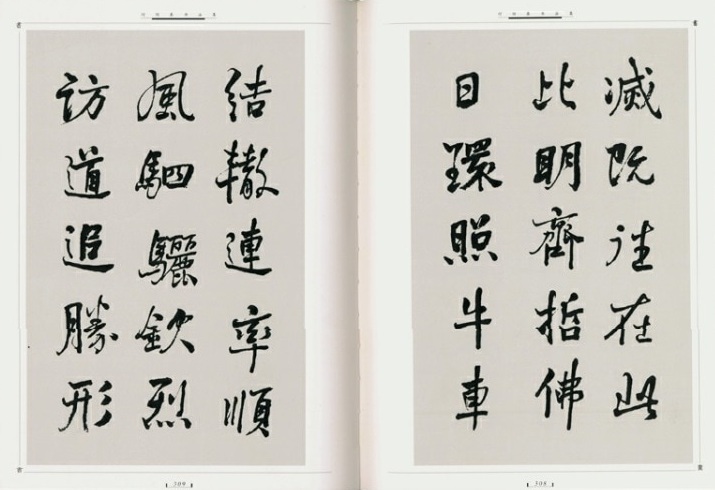 滅既往在此
比明齊哲佛
日環照牛車
308
結轍連率順
風駟驪欽烈
訪道追勝形
309